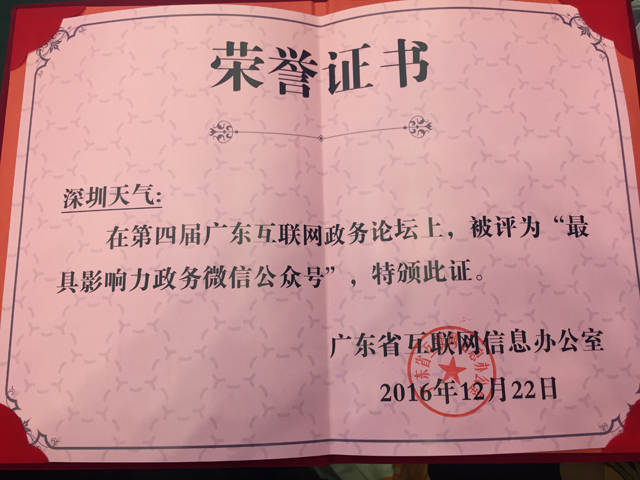 荣誉证书
深圳天气:
在第四届广东互联网政务论坛上，被评为“最
具影响力政务微信公众号”，特颁此证。
广东省互联网信息办公室
2016年12月22日